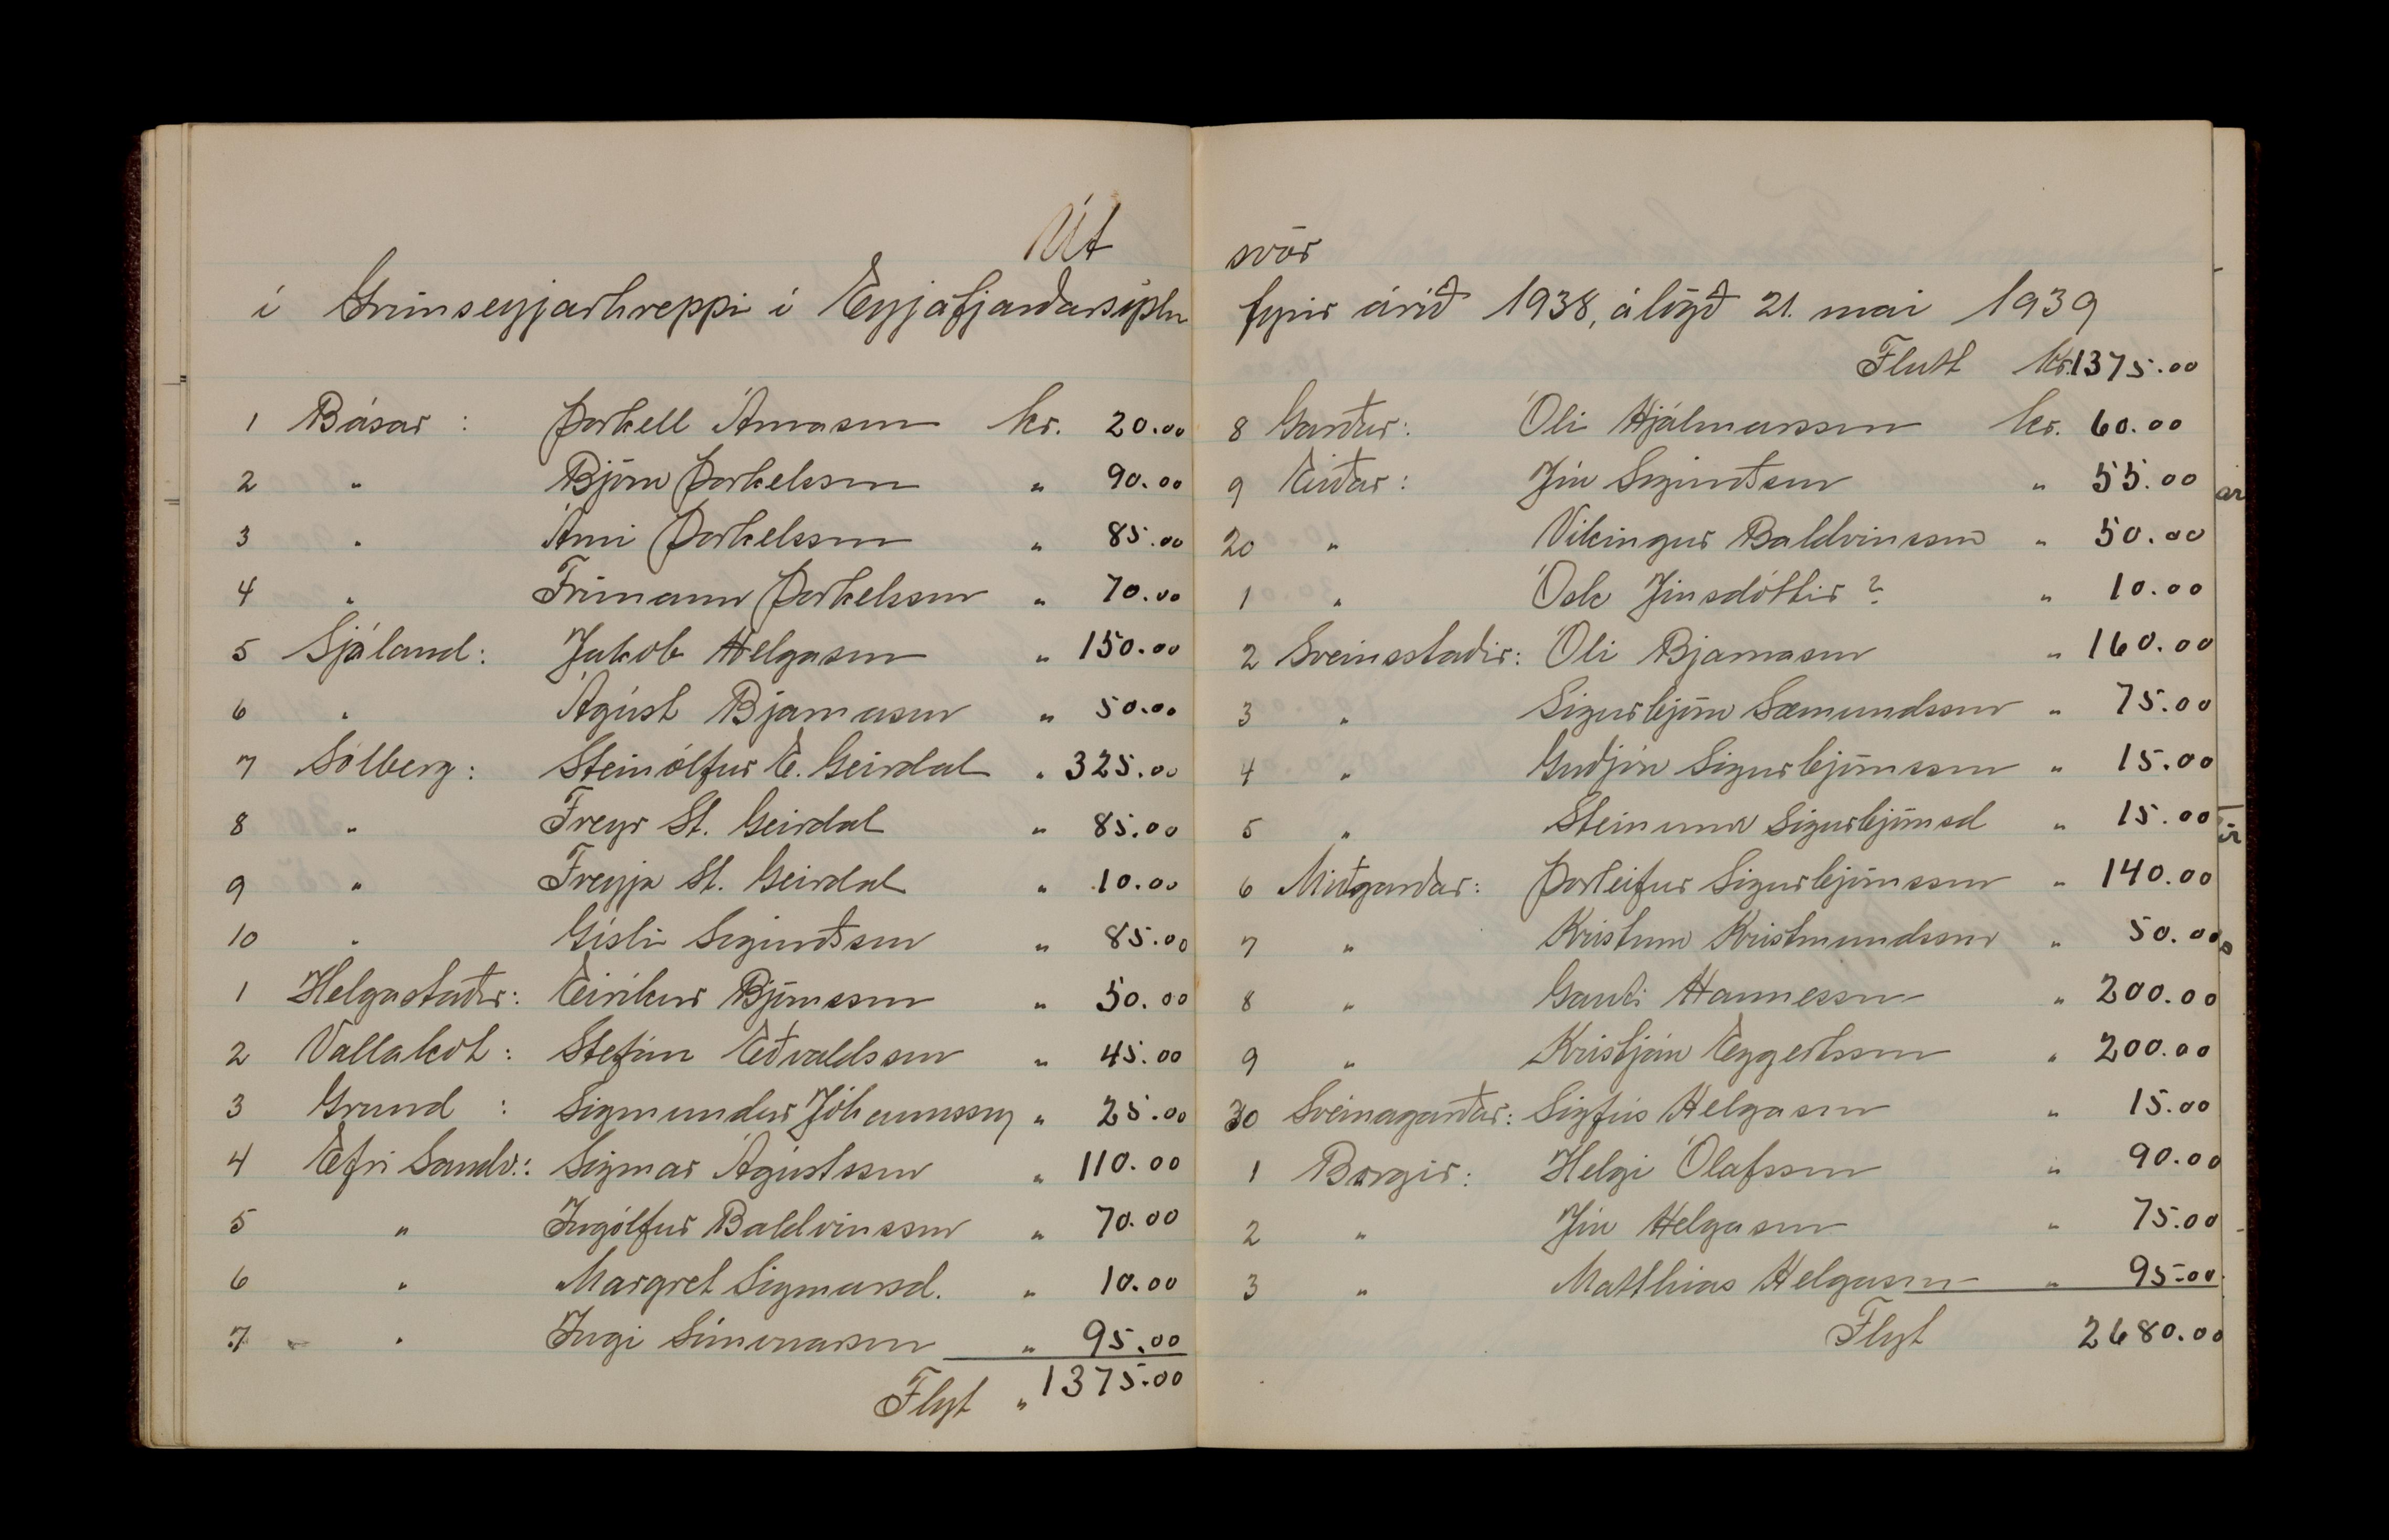 Út
í Grímseyjarhreppi í Eyjafjarðarsýslu
1 Básar : Þorkell Árnason kr. 20.00
2 " Björn Þorkelsson " 90.00
3 " Árni Þorkelsson " 85.00
4 " Frímann Þorkelsson " 70.00
5 Sjáland: Jakob Helgason " 150.00
6 " Ágúst Bjarnason " 50.00
7 Sólberg: Steinólfur E. Geirdal " 325.00
8 " Freyr St. Geirdal " 85.00
9 " Freyja St. Geirdal " 10.00
10 " Gísli Sigurðsson " 85.00
1 Helgastaðir: Eiríkur Björnsson " 50.00
2 Vallakot: Stefán Eðvaldsson " 45.00
3 Grund : Sigmundur Jóhannsson " 25.00
4 Efri Sandv.: Sigmar Ágústsson " 110.00
5 " Ingólfur Baldvinsson " 70.00
6 " Margret Sigmarsd. " 10.00
7 " Ingi Símonarson " 95.00
Flyt " 1375.00
svör
fyrir árið 1938, álögð 21. mai 1939
Flutt kr. 1375.00
8 Garður: Óli Hjálmarsson kr. 60.00
9 Eiðar: Jón Sigurðsson " 55.00
20 " Víkingur Baldvinsson " 50.00
1 " Ósk Jónsdóttir ? " 10.00
2 Sveinsstaðir: Óli Bjarnason " 160.00
3 " Sigurbjörn Sæmundsson " 75.00
4 " Guðjón Sigurbjörnsson " 15.00
5 " Steinunn Sigurbjörnsd " 15.00
6 Miðgarðar: Þorleifur Sigurbjörnsson " 140.00
7 " Kristinn Kristmundsson " 50.00
8 " Gauti Hannesson " 200.00
9 " Kristján Eggertsson " 200.00
30 Sveinagarðar: Sigfús Helgason " 15.00
1 Borgir: Helgi Ólafsson " 90.00
2 " Jón Helgason " 75.00
3 " Matthías Helgason " 95.00
Flyt 2680.00